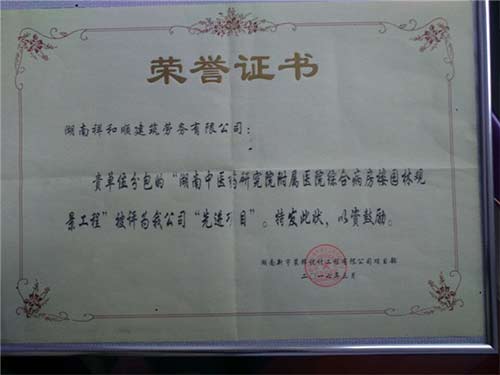 荣誉证书
湖南祥和顺建筑劳务有限公司：
贵单位分包的“湖南中医药研究院附属医院综合病房楼园林观
景工程”被评为我公司“先进项目”。特发此状，以资鼓励。
湖南新宇装饰设计工程有限公司项目部
二〇一七年三月